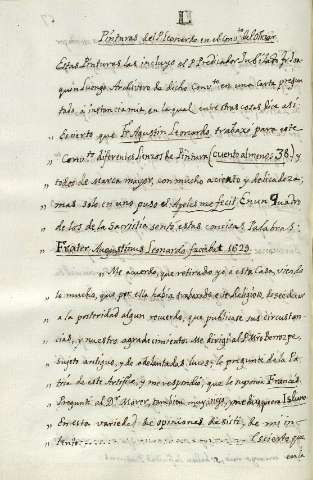 L
Pinturas del P. Leonardo en el Conv.to del Olivar
Estas Pinturas las incluyo el P. Predicador Jubilado Fr. Joa
quin Luengo Archivero de dicho Conv.to en una carta
à instancia mia, en la qual entre otras cosas dice asi
„ Es cierto que Fr. Agustin Leonardo, trabaxo para este
„ Conv.to diferentes lienzos de Pintura (cuento al menos 38) y
„ todos de Marca mayor, con mucho acierto y delicadeza,
„ mas solo en uno puso el Apeles me fecit. En un Quadro
„ de los de la Sacristia sentò estas concisas Palabras:
„ Frater Augustinus Leonardo faciebat 1629.
„ Me acuerdo, que retirado yo a esta Casa, viendo
„ lo mucho, que por ella havia trabaxado este Religioso, deseè dexar
„ a la posteridad algun recuerdo, que publicase sus circustan
„ cias, y nuestro agradecimiento. Me dirigi al P. Mro
„ Sujeto antiguo, y de adelantadas luces, le preguntè de la Pa
„ tria de este Artifice, y me respondiò, que le suponia Francès.
„ Preguntè al P. Mtro. Morer, tambien muy viejo, y me
„ En esta variedad de opiniones, desisti de mi in
„ tento. Es cierto, que
en la